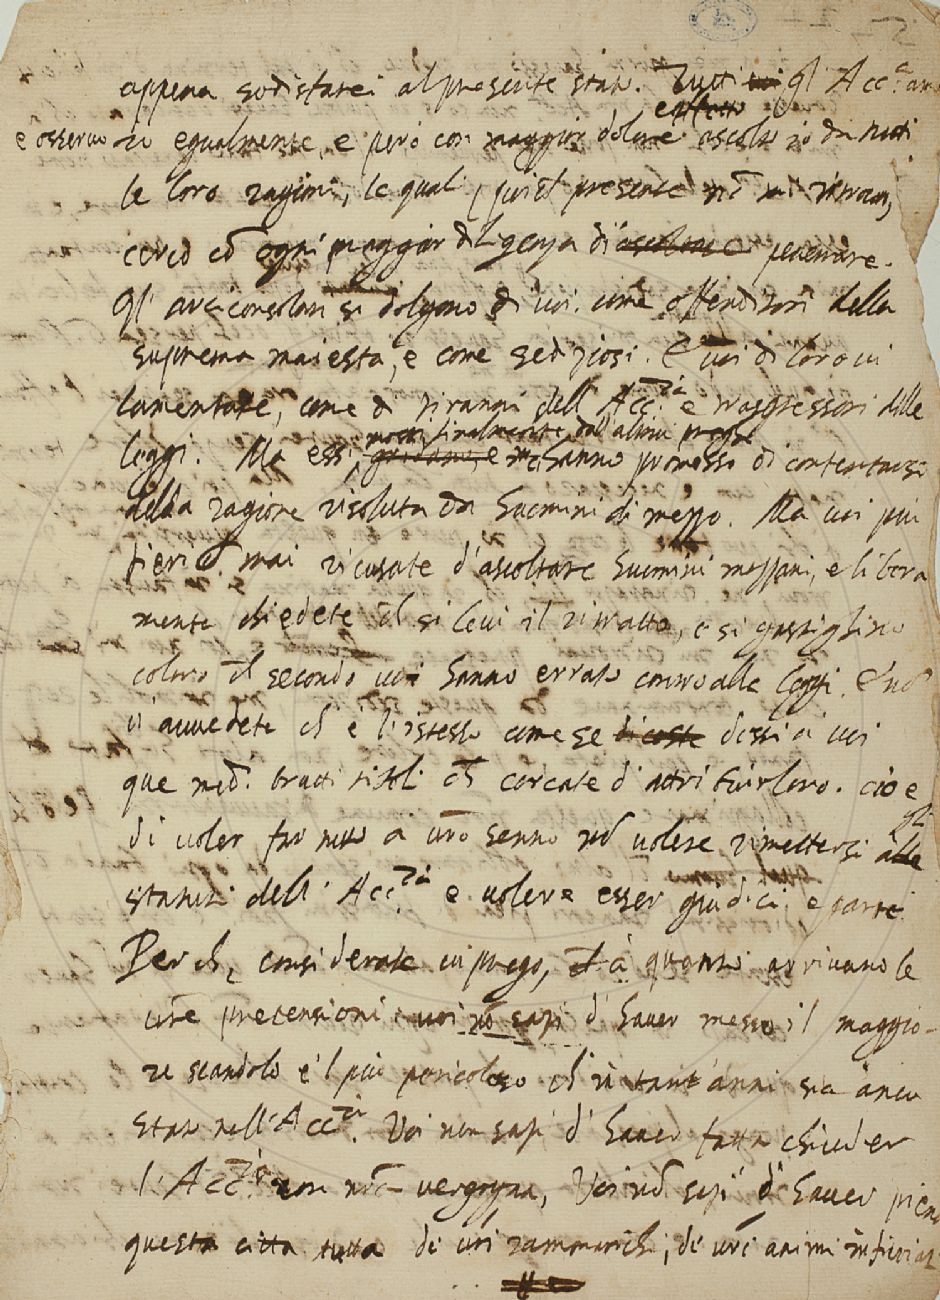 appena sodisfarei al presente stato. Tutti gl' Acc.ci am
e osservo io egualmente, e però con maggior dolore ascolto io da tutti
effetto
le loro ragioni, le quali,
cerco cō ogni maggior diligenza di penetrare.
Gl' arciconsolari si dolgono di voi come offenditori della
suprema maiestà, e come sediziosi. E voi di loro vi
lamentate, come di tiranni dell' Acc.ia e trasgressori delle
leggi. Ma essi, mossi finalmente dall' altrui
hanno promesso di contentarsi
della ragione risoluta da huomini di mezzo. Ma voi piu
fieri ch mai ricusate d'ascoltare huomini mezzani, e libera
mente chiedete ch si levi il ritratto, e si gastighino
coloro ch secondo voi hanno errato contro alle leggi. E nō
v'avvedete ch è l'istesso come se dissi a voi
que med. brutti titoli ch cercate d'attribuir loro. cioè
di voler far tutto a vro senno nō volere rimettersi gli
statuti dell' Acc.ia e volere esser giudici e parte.
Perch, considerate vi prego, a quanto arrivano le
vre pretensioni voi nō sapi d'haver messo il maggio-
re scandolo e 'l piu pericoloso ch in tant' anni sia anco
stato nell' Acc.ia. Voi non sapi d'haver fatta chiuder
l'Acc.ia con nra vergogna, Voi nō sapi d'haver piena
questa citta tutta di vri rammarichi, di vri animi infuriati